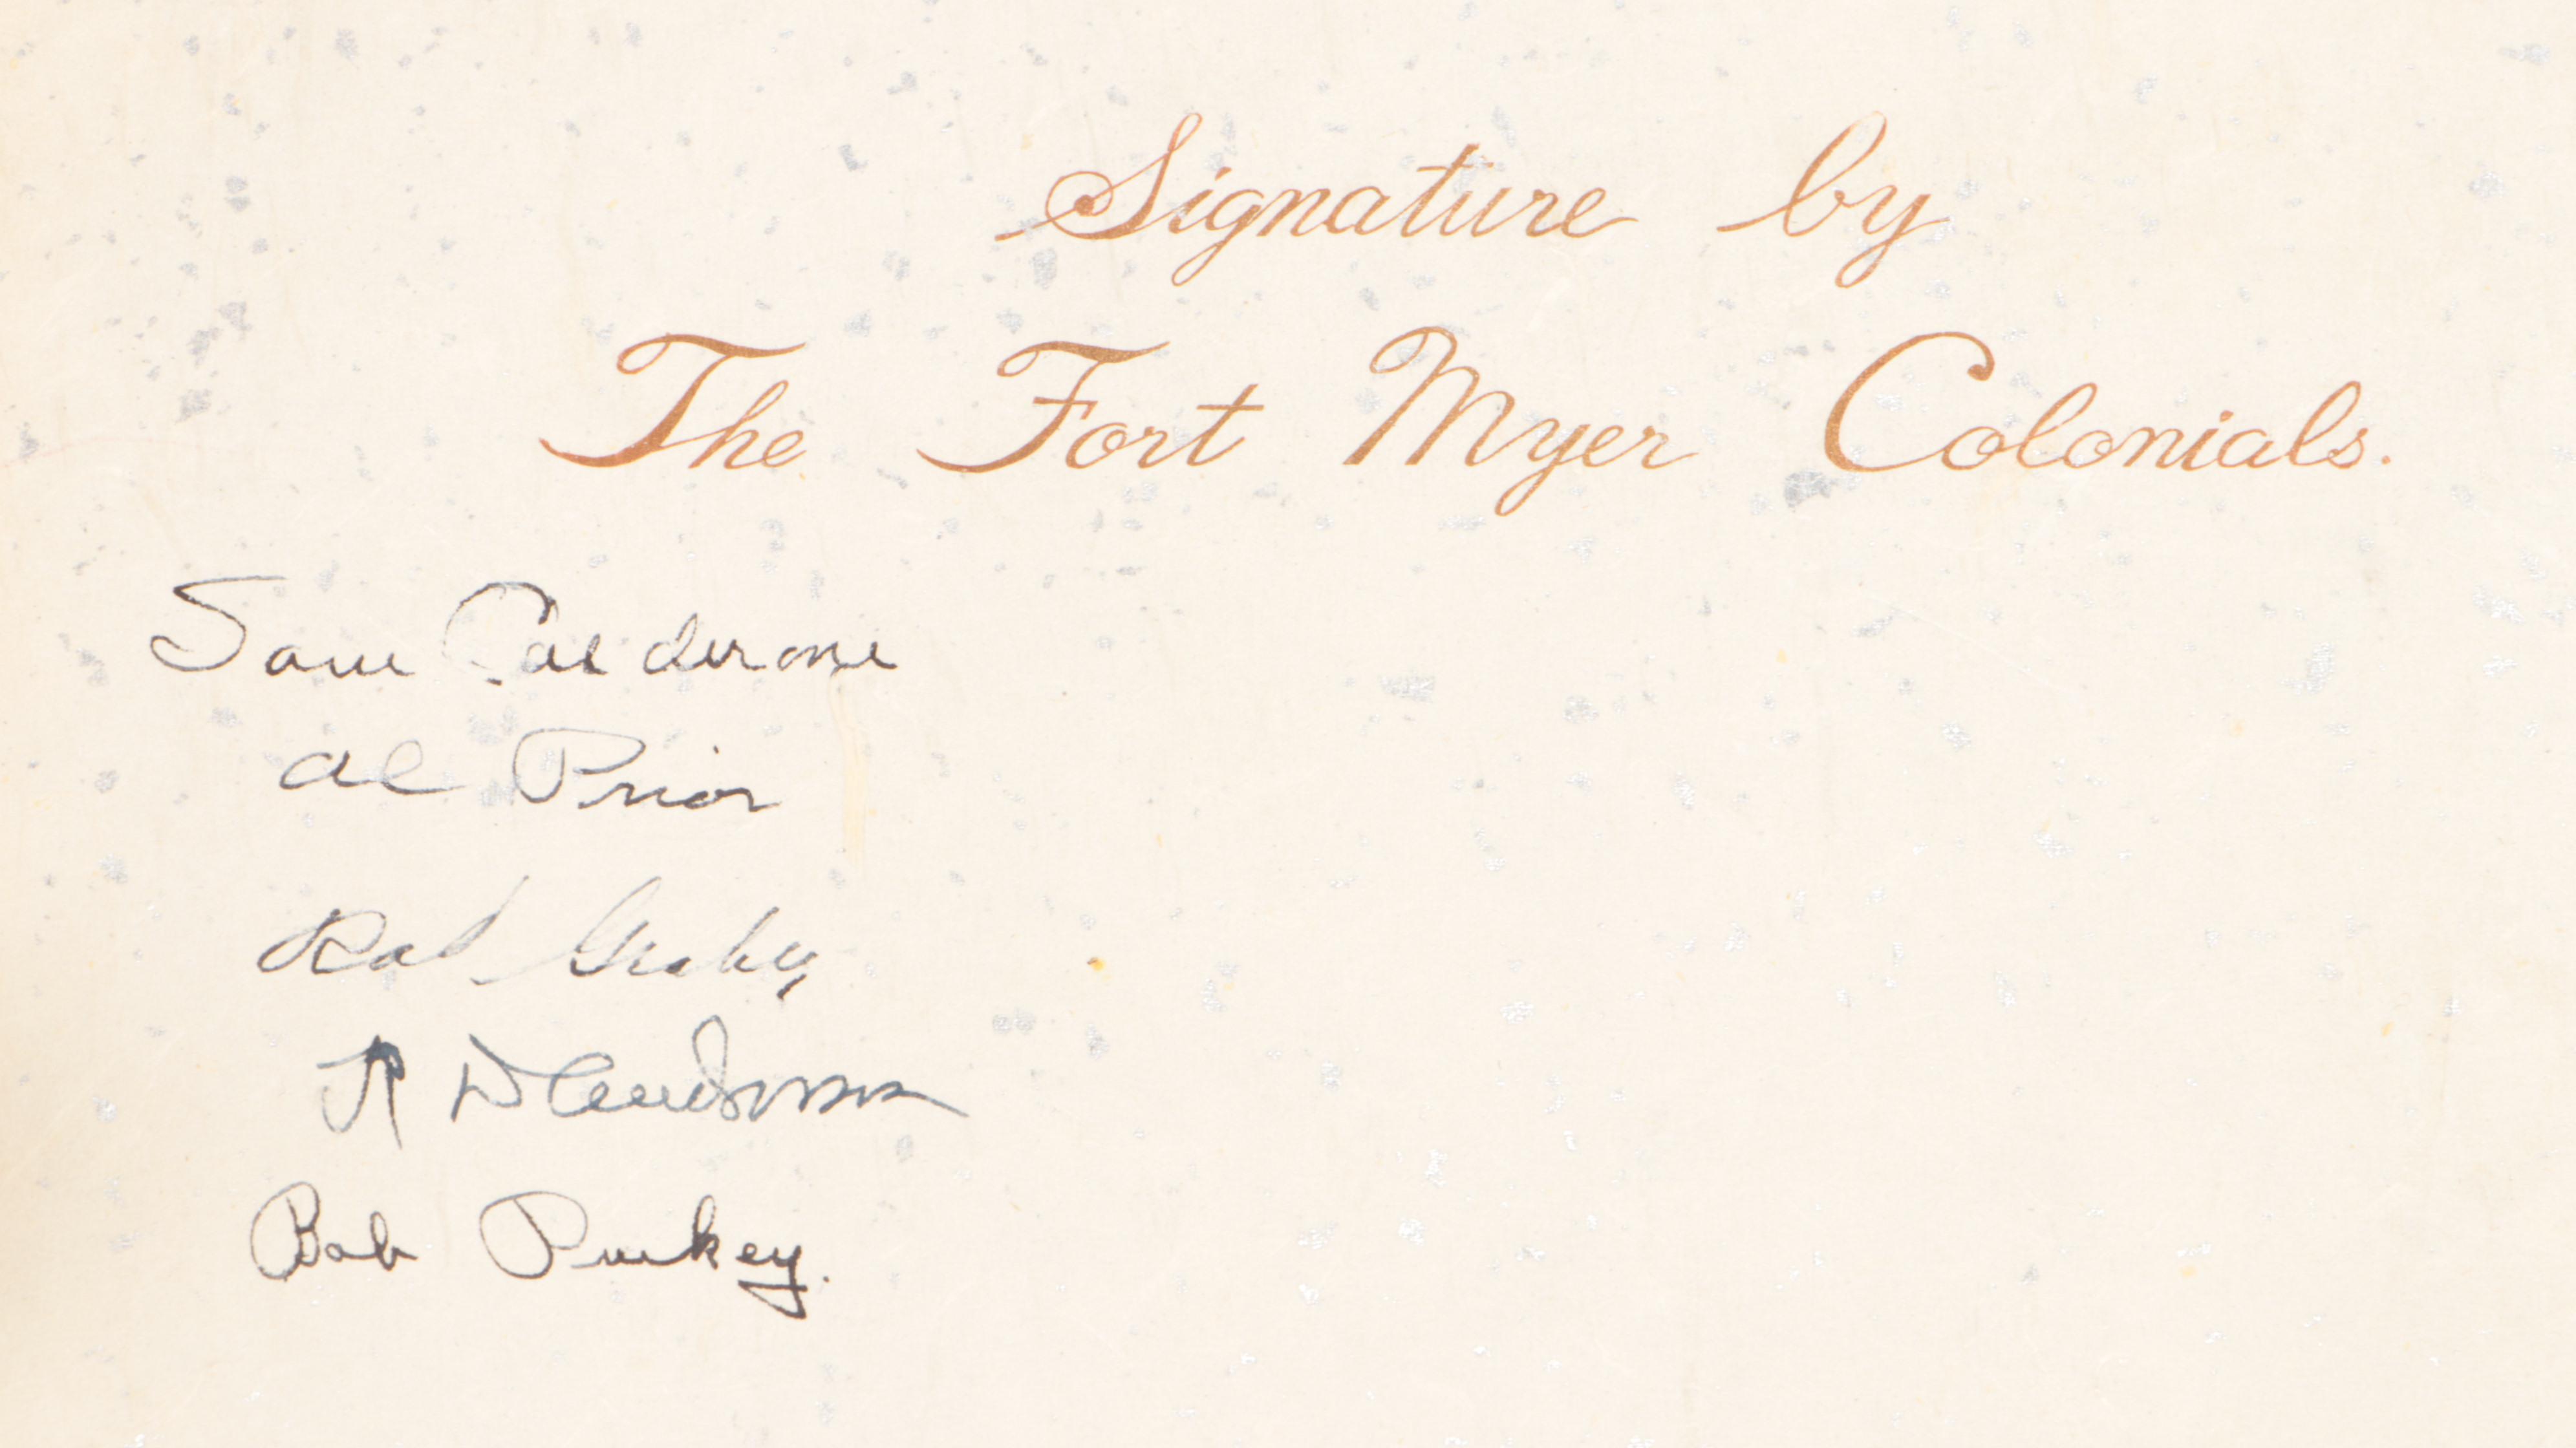 Signature by
The Fort Myer Colonials.
Sam Calderone
Al Prior
Bob Purkey.